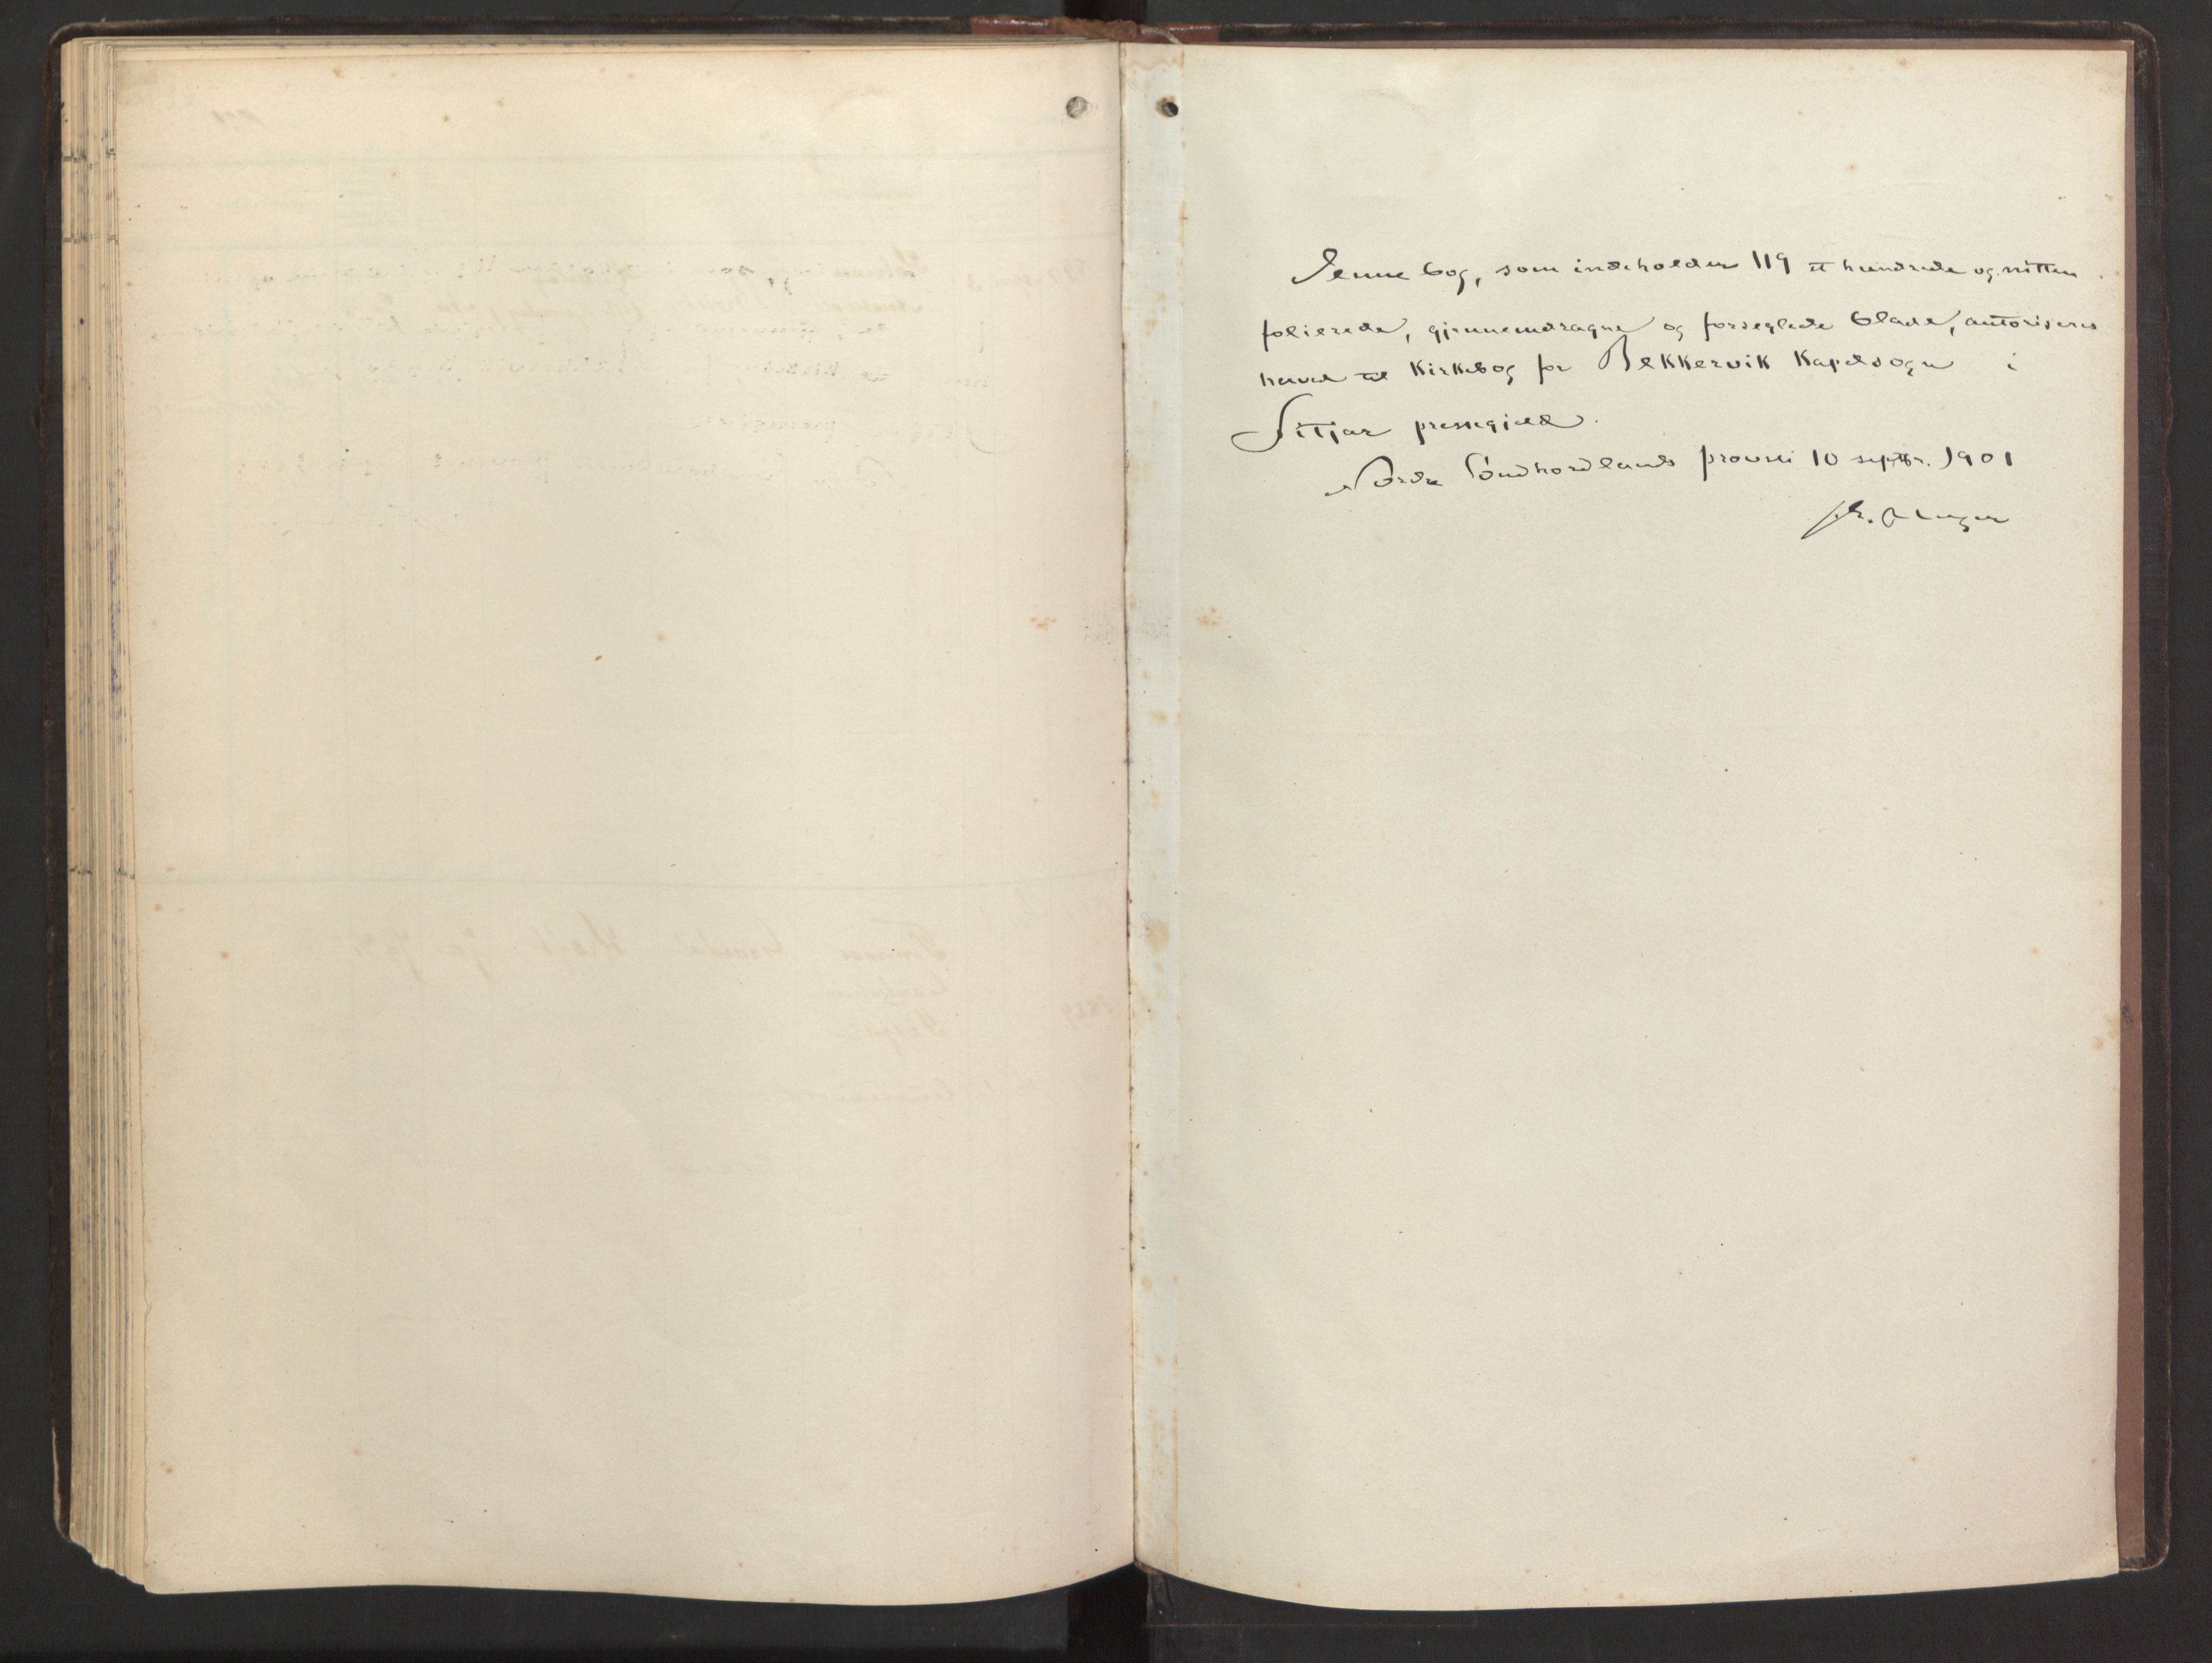 Denne bog, som indeholder 119 et hundrede og nitten
folierede, gjennemdragne og forseglede blade, autoriseres
herved til Kirkebog for Bekkervik Kapelsogn i
Fitjar prestegjeld.
Nordre Søndhordlands provsti 10 septbr. 1901